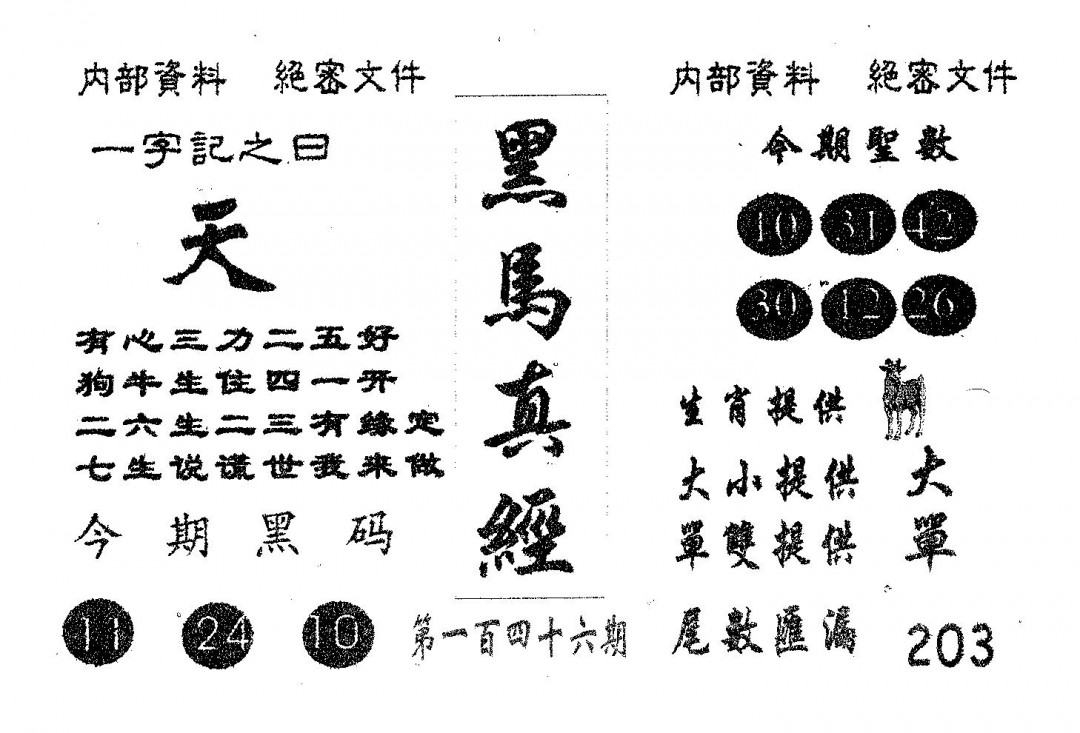 内部資料 絕密文件
一字記之曰
天
有心三力二五好
狗牛生住四一开
二六生二三有缘定
七生说谎世我来做
今期黑码
11 24 10
黑馬真經
第一百四十六期
内部資料 絕密文件
今期聖數
10 31 42
30 12 26
生肖提供
大小提供 大
單雙提供 單
尾數匯漏 203